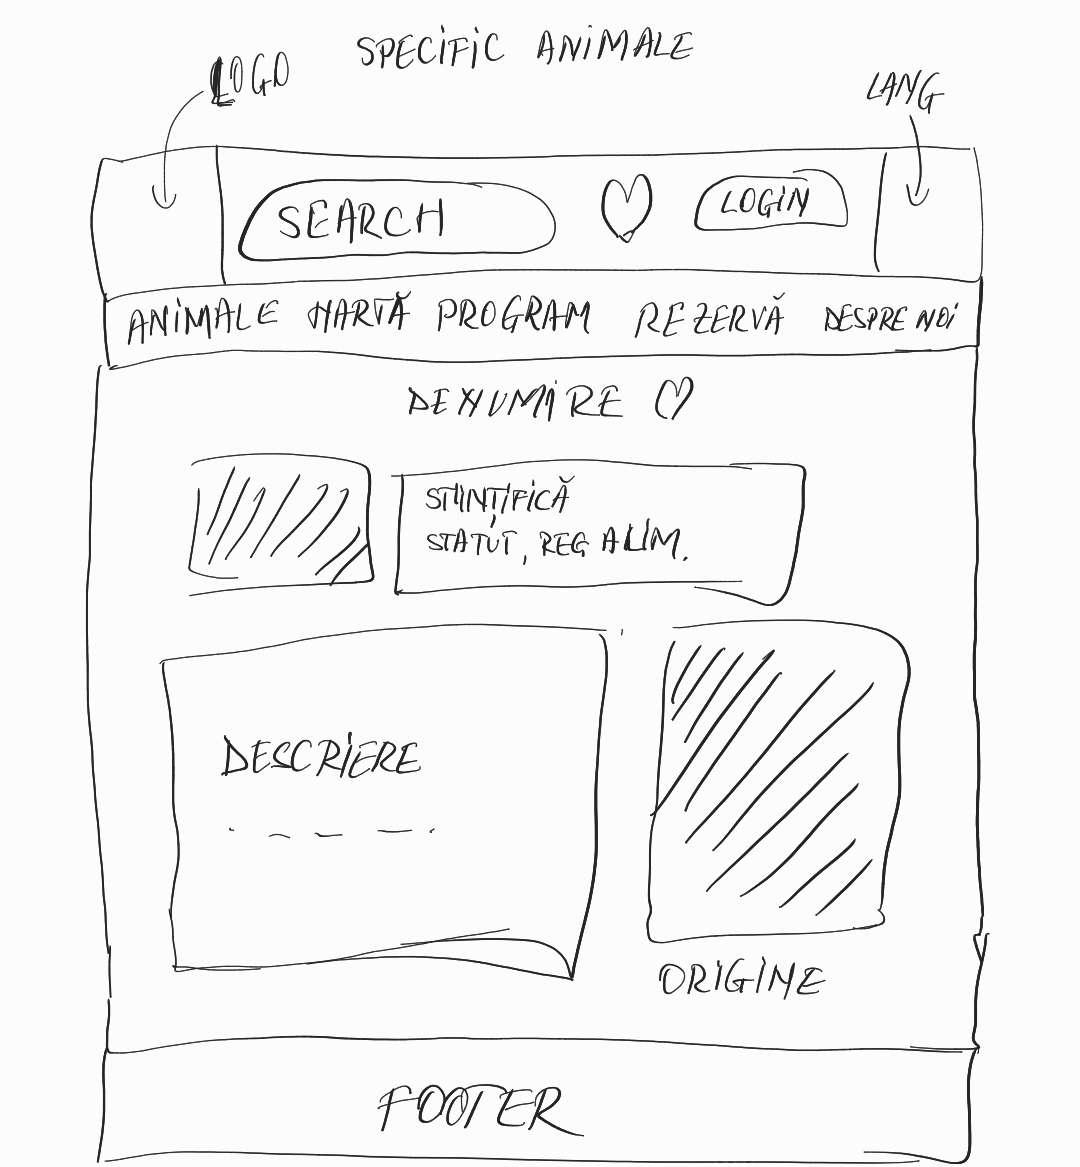 SPECIFIC ANIMALE
LOGO
LANG
SEARCH
LOGIN
ANIMALE HARTĂ PROGRAM REZERVĂ DESPRE NOI
DENUMIRE
STIINȚIFICĂ
STATUT, REG ALIM.
DESCRIERE
ORIGINE
FOOTER